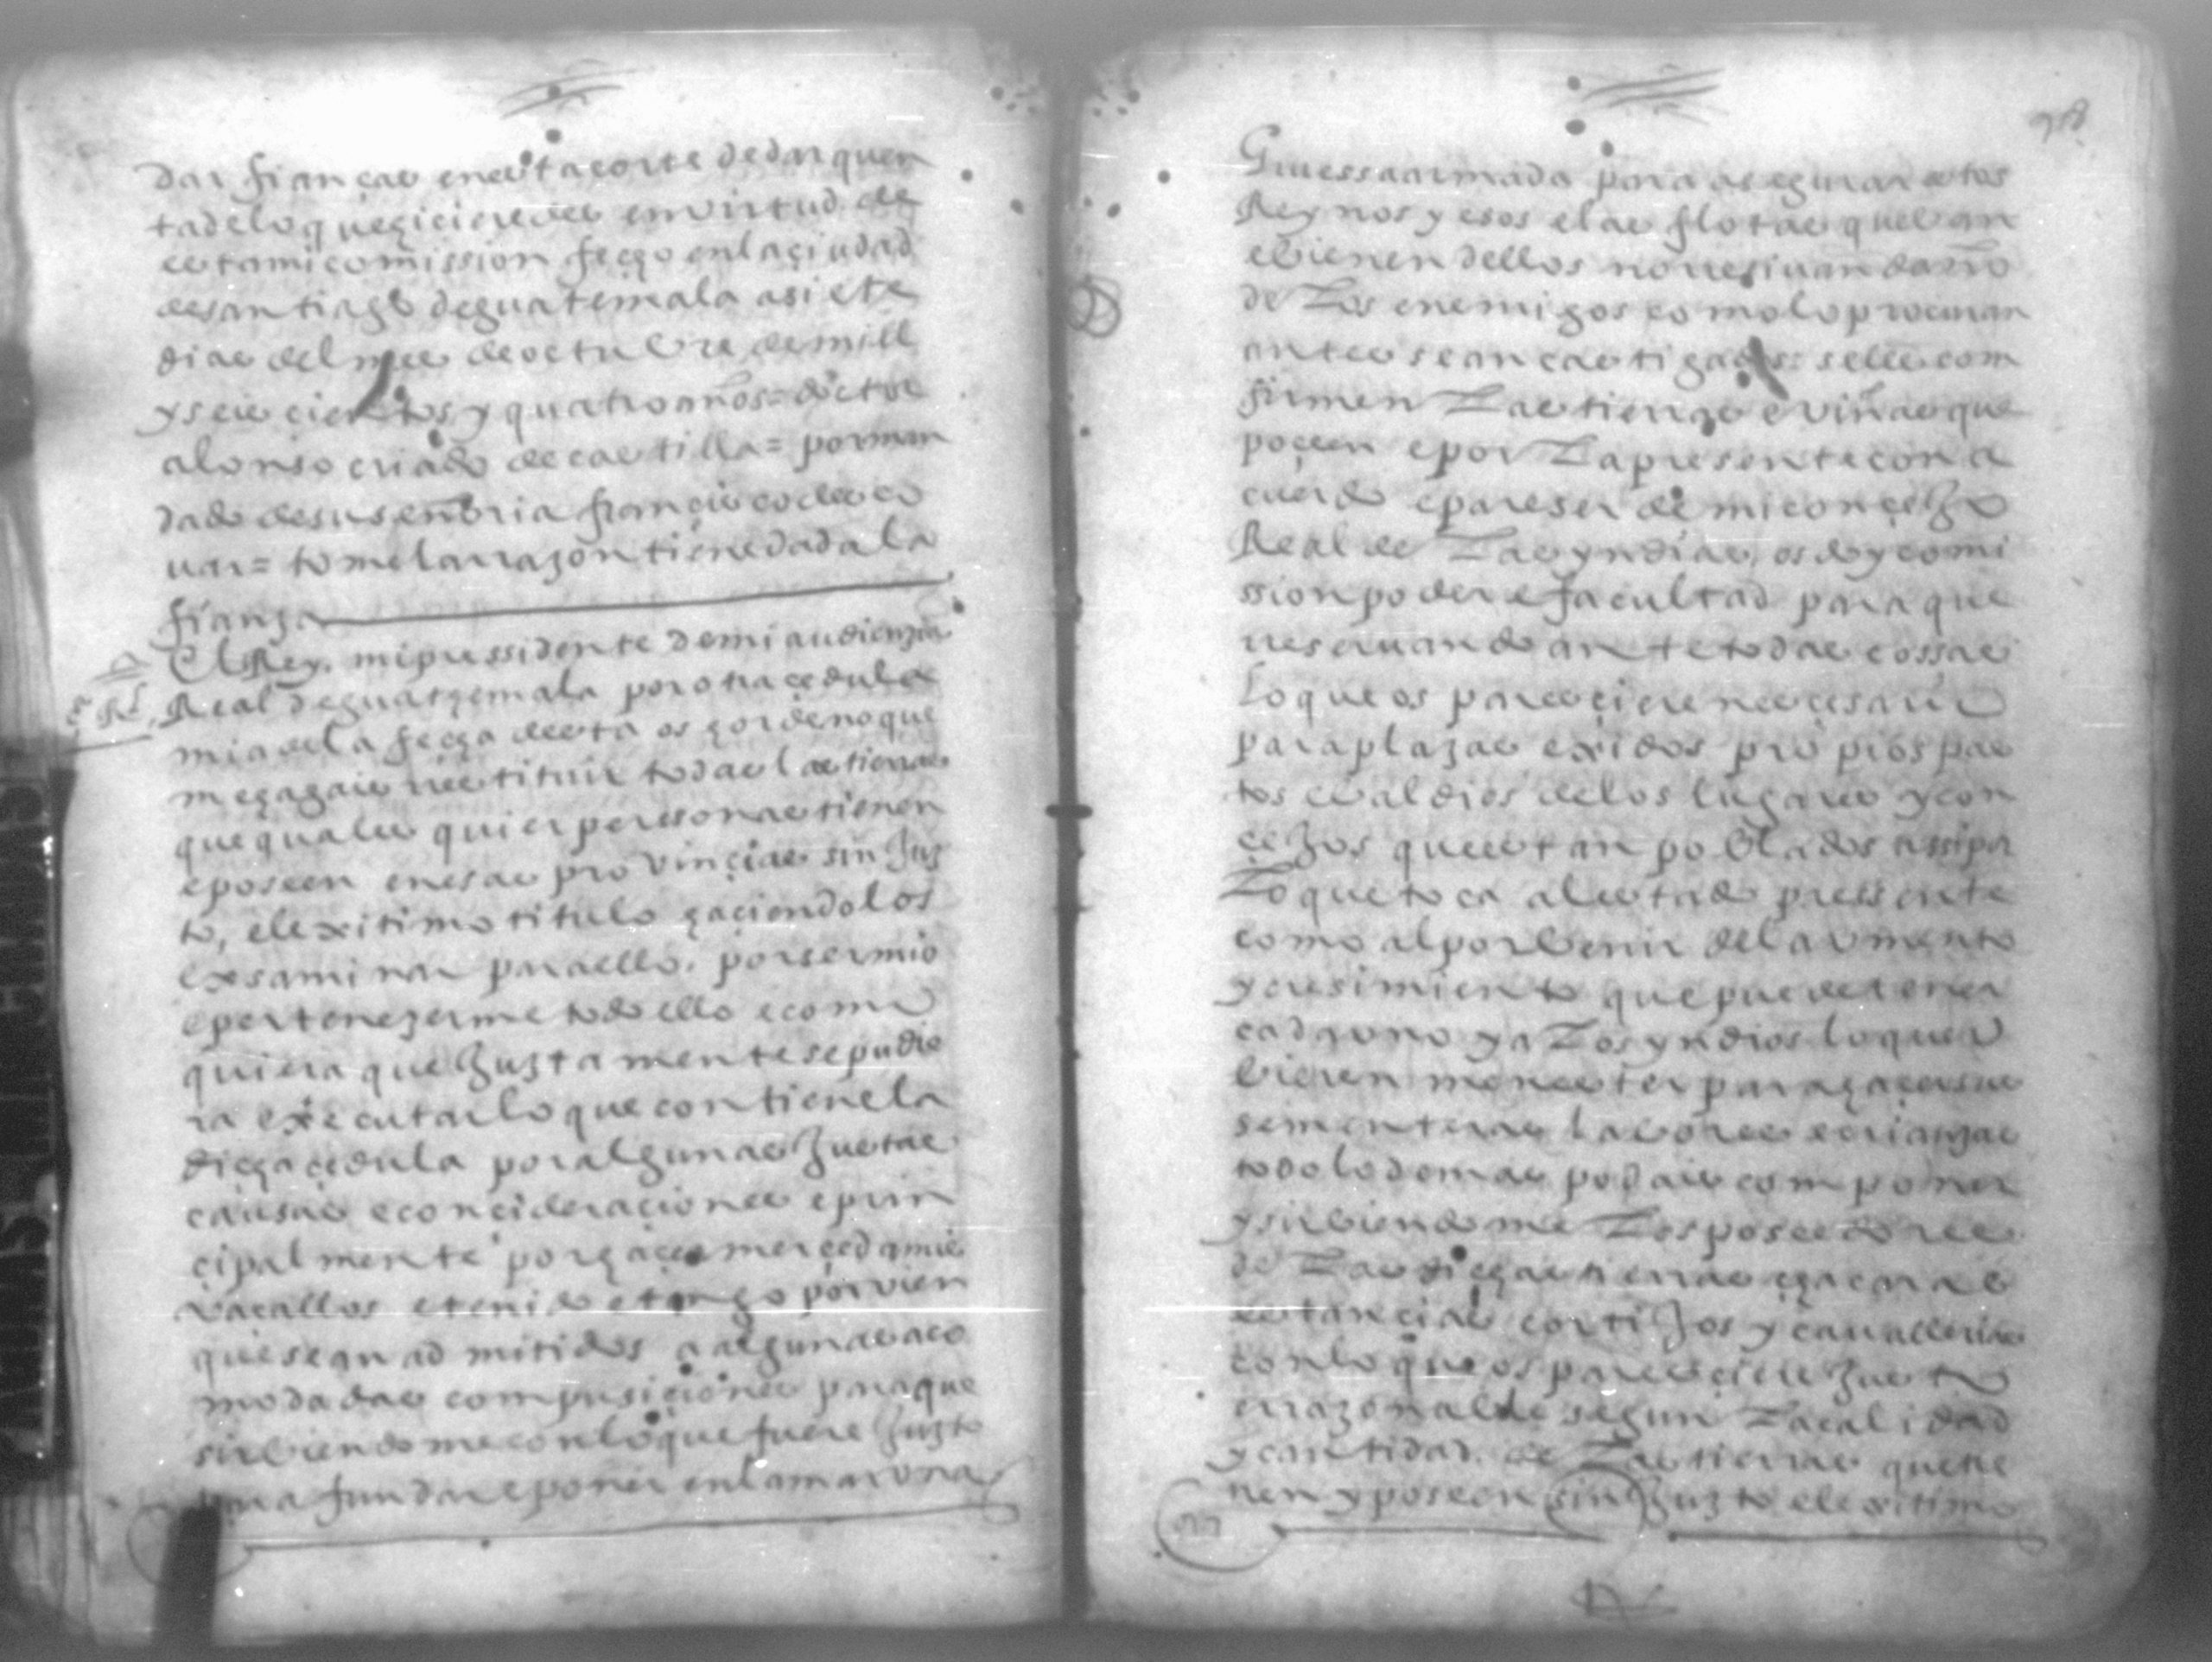 dar fianças en esta corte de dar quen
ta de lo que hicieredes en virtud de
esta mi comission fecho en la çiudad
de santiago de guatemala a siete
dias del mes de octubre de mill
y seis cientos y quatro años = doctor
alonso criado de castilla = por man
dado de su señoria françisco de esco
uar = tome la rrazon tiene dada la
fianza
El Rey. mi pressidente de mi audienzia
Real de guathemala por otra çedula
mia de la fecha desta os hordeno que
me hagais rrestituir todas las tierras
que quales quier peresonas tienen
e poseen en esas provinçias sin Jus
to, e lexitimo titulo haçiendolos
exsaminar para ello. por ser mio
e pertenezerme todo ello e como
quiera que Justamente se pudie
ra executar lo que contiene la
dicha çedula por algunas Justas
causas e conçideraçiones e prin
çipalmente por haçer merçed a mis
vaçallos e tenido e tengo por vien
que sean admitidos a algunas aco
modadas compusiçiones para que
sirbiendome con lo que fuere Justo
para fundar e poner en la mar una
98
Gruessa armada para asegurar estos
Reynos y esos e las flotas que ban
e bienen dellos no rresiuan daño
de Los enemigos como lo procuran
antes sean castigados: se les com
firmen Las tierras e viñas que
poçeen e por La presente con a
cuerdo e pareser de mi conçeJo
Real de Las yndias, os doy comi
ssion poder e facultad para que
rreseruando ante todas cossas
Lo que os paresçiere nesçesario
para plazas exidos propios pas
tos e baldios de los lugares y con
çeJos que estan poblados assi por
Lo que toca al estado pressente
como al por benir del aumento
y cresimiento que puede tener
cada uno y a Los yndios lo que u
bieren menester para haçer sus
sementeras labores e crianzas
todo lo demas podais componer
y sirbiendome Los poseedores
de Las dichas tierras chacaras
estancias cortiJos y cauallerias
con lo que os paresçiere Justo
e rrazonable segun La calidad
y cantidad de Las tierras que tie
nen y poseen sin Justo e lexitimo